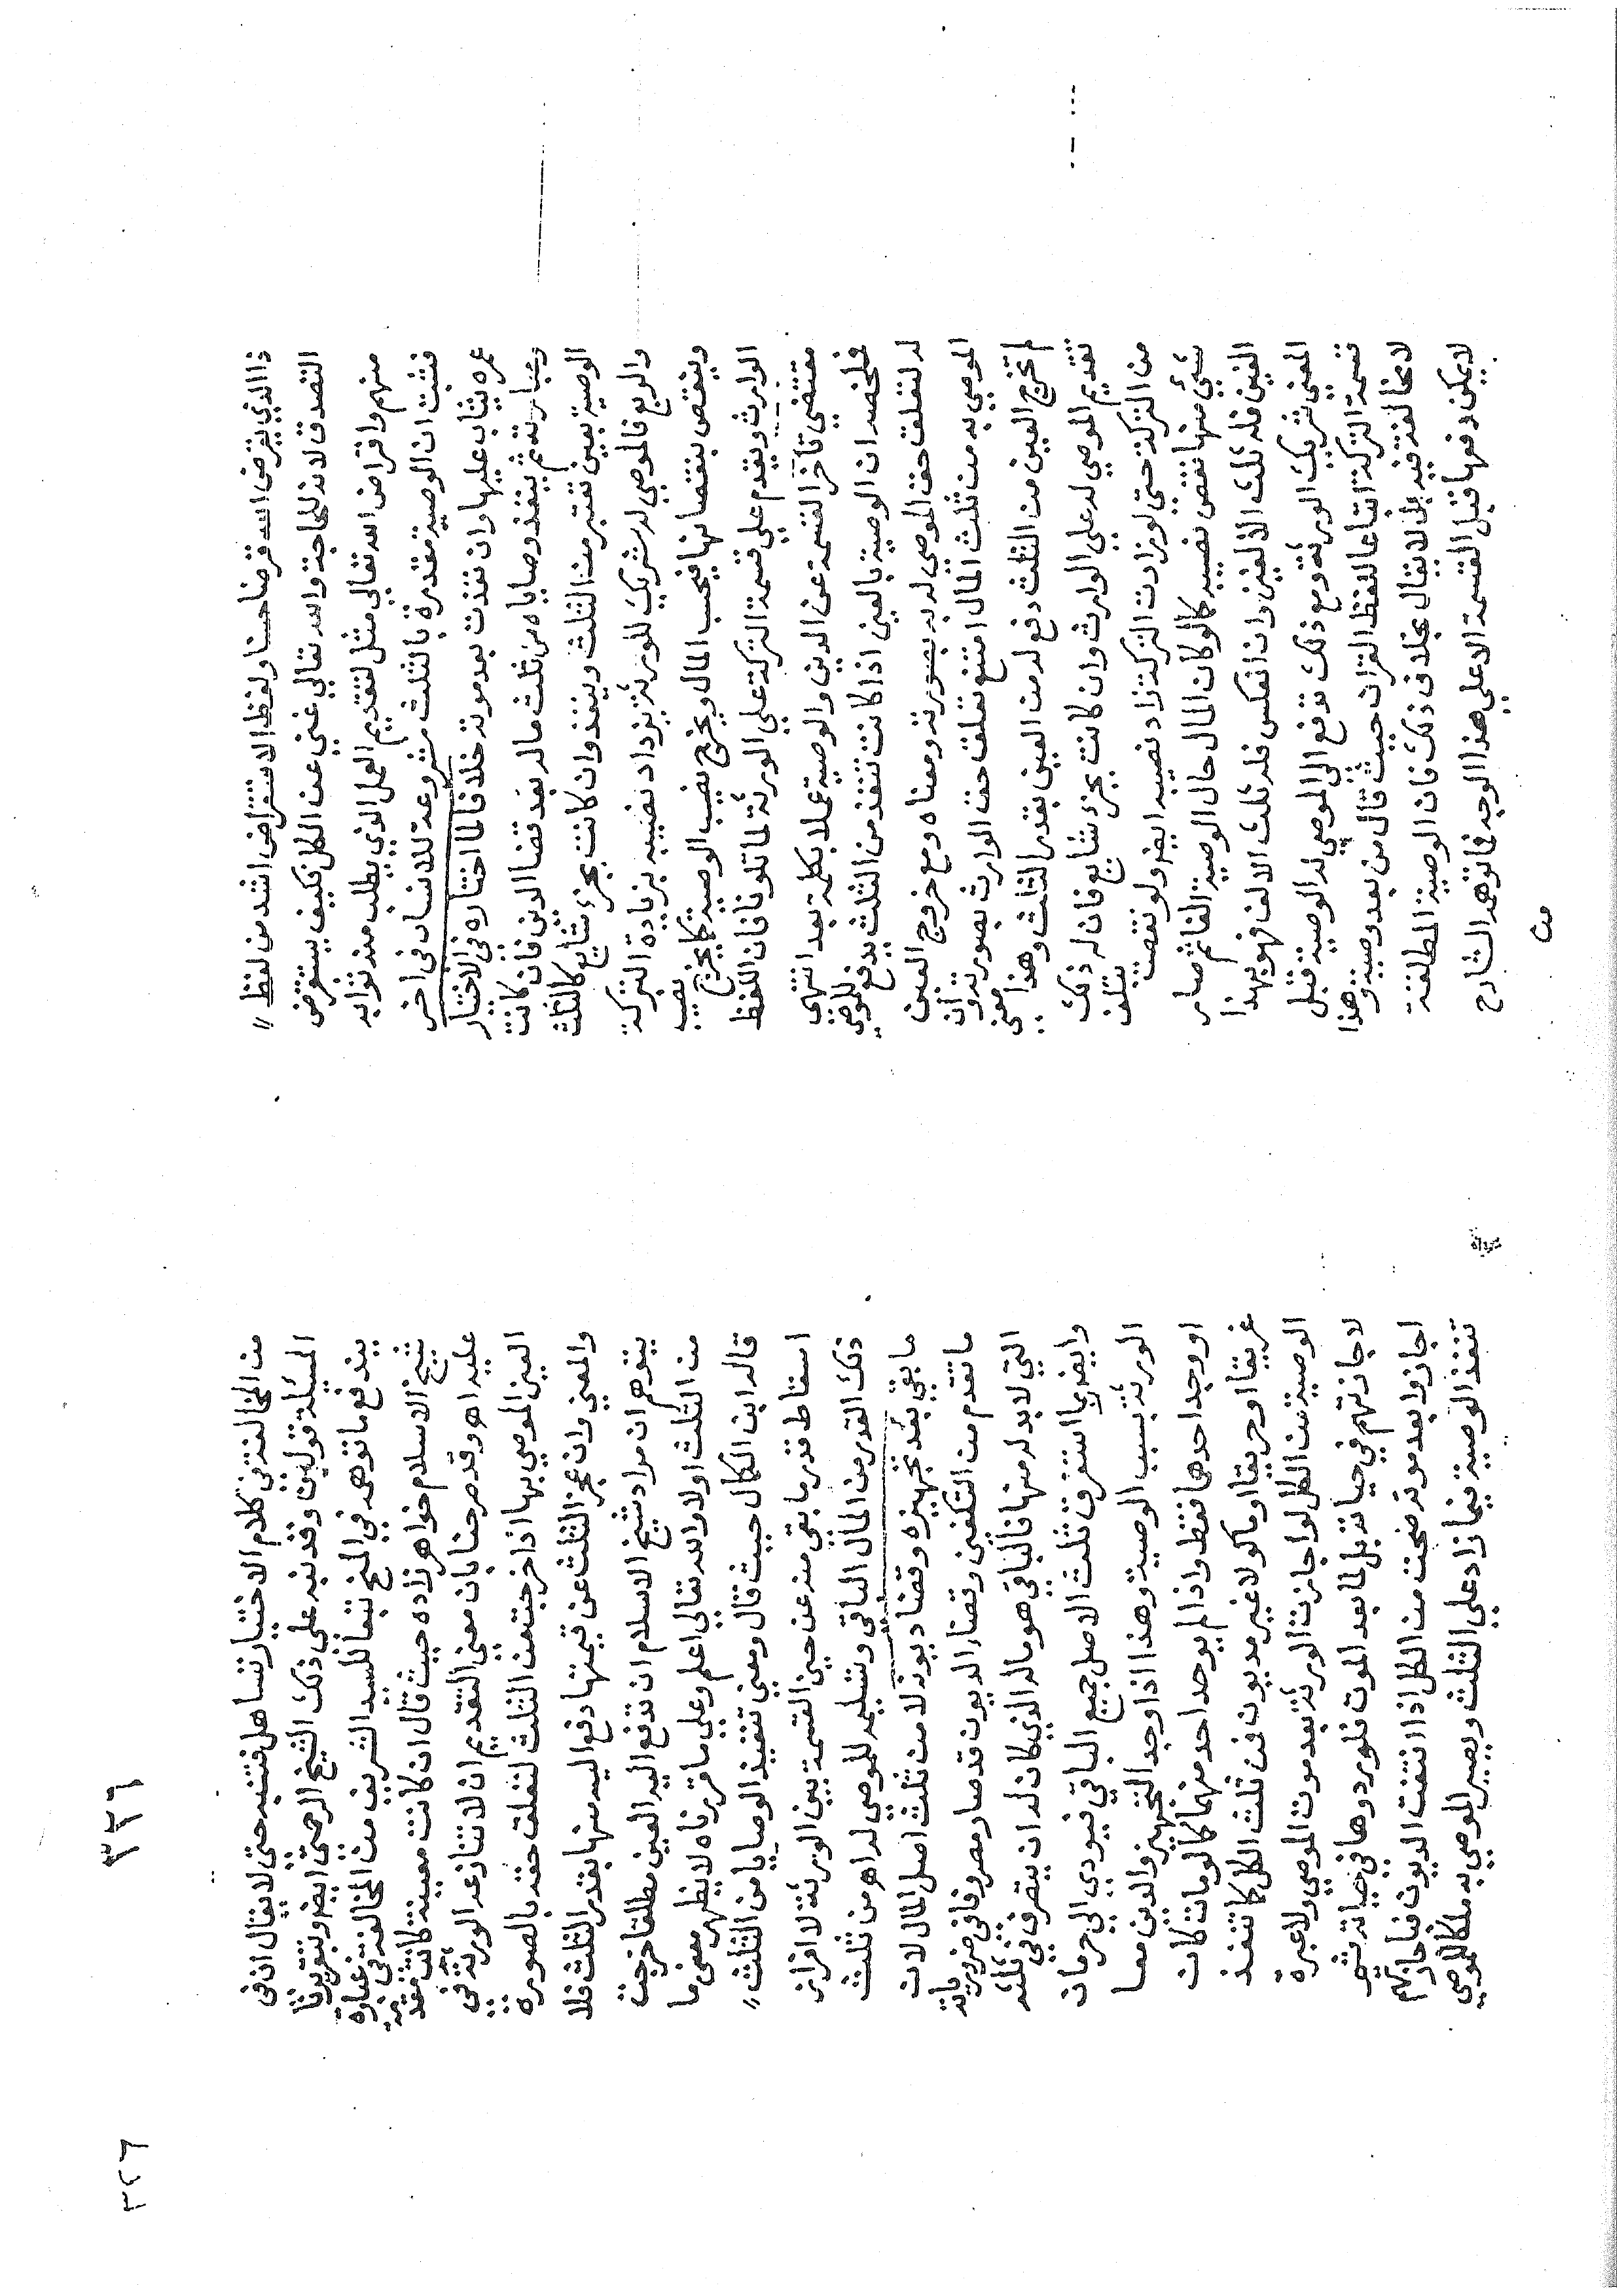 ذا الذي يقرض الله قرضا حسنا ولفظ الاستقراض اشد من لفظ
التصدق لانه للحاجة والله تعالي غني عن الكل فكيف يستقرض
منهم واقراض الله تعالي مثل لتقديم العمل الذي يطلب منه ثوابه
فثبت ان الوصية مقدرة بالثلث مشروعة للانسان في اخر
عمره يثاب عليها وان نفذت بعد موته خلافا لما اختاره في الاختيار
وعبارته ثم ينفذ وصاياه من ثلث ماله بعد قضا الدين فان كانت
الوصية بعين تعتبر من الثلث وينفذ وان كانت بجزء شايع كالثلث
والربع فالموصي له شريك للورثة يزداد نصيبه بزيادة التركة
وينقص بنقصانها فيحسب المال ويخرج نصيب الوصية كما يخرج نصيب
الوارث ويقدم علي قسمة التركة علي الورثة لما تلونا فان اللفظ
مقتضي تأخر القسمة عن الدين والوصية عملا بكلمة بعد انتهي
فلخصه ان الوصية بالعين اذا كانت تنفذ من الثلث يدفع للموصي
له لتعلق حق الموصي له به بصورته ومعناه ومع خروج العين
الموصي به من ثلث المال امتنع تعلق حق الوارث بصورته وان
لم تخرج العين من الثلث دفع له من العين بقدر الثلث وهذا معني
تقديم الموصي له علي الوارث وان كانت بجزء شايع فان له ذلك
من التركة حتي لو زادت التركة زاد نصيبه ايضا ولو نقصت بتلف
شيئ منها نقص نصيبه كما لو كان المال حال الوصية الفا ثم صار
الفين فله ثلث الالفين وان انعكس فله ثلث الالف فهو بهذا
المعني شريك الورثة ومع ذلك تدفع الي الموصي له الوصية قبل
قسمة التركة اتباعا للفظ القران حيث قال من بعد وصية وهذا
لا مخالفة فيه بان لا يقال بخلاف ذلك فان الوصية المطلقة
لا يمكن دفعها قبل القسمة الا علي هذا الوجه فما توهمه الشارح
من
٣٢٦
٣٢٦
من المخالفة في كلام الاختيار تساهل فتنبه حتي لا يقال ان في
المسئلة قولين وقد نبه علي ذلك الشيخ الرحمتي ايضا وبتقريرنا
يندفع ما توهمه في المنح تبعا للسيد الشريف من المخالفة في عبارة
شيخ الاسلام خواهر زاده حيث قال ان كانت معينة كانت مقدمة
عليه اهـ وقد صرحنا بان معني التقديم ان لا تنازعه الورثة في
العين الموصي بها اذا خرجت من الثلث لتعلق حقه بالصورة
والمعني وان عجز الثلث عن قيمتها دفع اليه منها بقدر الثلث فلا
يتوهم ان مراد شيخ الاسلام ان تدفع اليه العين مطلقا خرجت
من الثلث او لا والله تعالي اعلم وعلي ما قررناه لا يظهر معني ما
قاله ابن الكمال حيث قال ومعني تنفيذ الوصايا من الثلث
اسقاط قدرها بقي منه عن حيز القسمة بين الورثة لا افراز
ذلك القدر من المال الباقي وتسليمه للموصي له اهـ من ثلث
ما بقي بعد تجهيزه وقضاء ديونه لا من ثلث اصل المال لان
ما تقدم من التكفين وقضاء الديون قد صار مصروفا في ضروراته
التي لا بد له منها فالباقي هو ماله الذي كان له ان يتصرف في ثلثه
وايضا ربما استغرق ثلث الاصل جميع الباقي فيودي الي حرمان
الورثة بسبب الوصية وهذا اذا وجد التجهيز والدين معا
او وجد احدهما فقط واذا لم يوجد احد منهما كما لو مات كان
غريقا او حريقا او ماكولا غير مديون فمن ثلث الكل كما تنفذ
الوصية من الكل لو اجازت الورثة بعد موت الموصي ولا عبرة
لاجازتهم في حياته بل لما بعد الموت فلو ردوها في حياته ثم
اجازوا بعد موته صحت من الكل اذا انتفت الديون فباجازتهم
تنفذ الوصية فيما زاد علي الثلث ويصير الموصي به ملكا للموصي